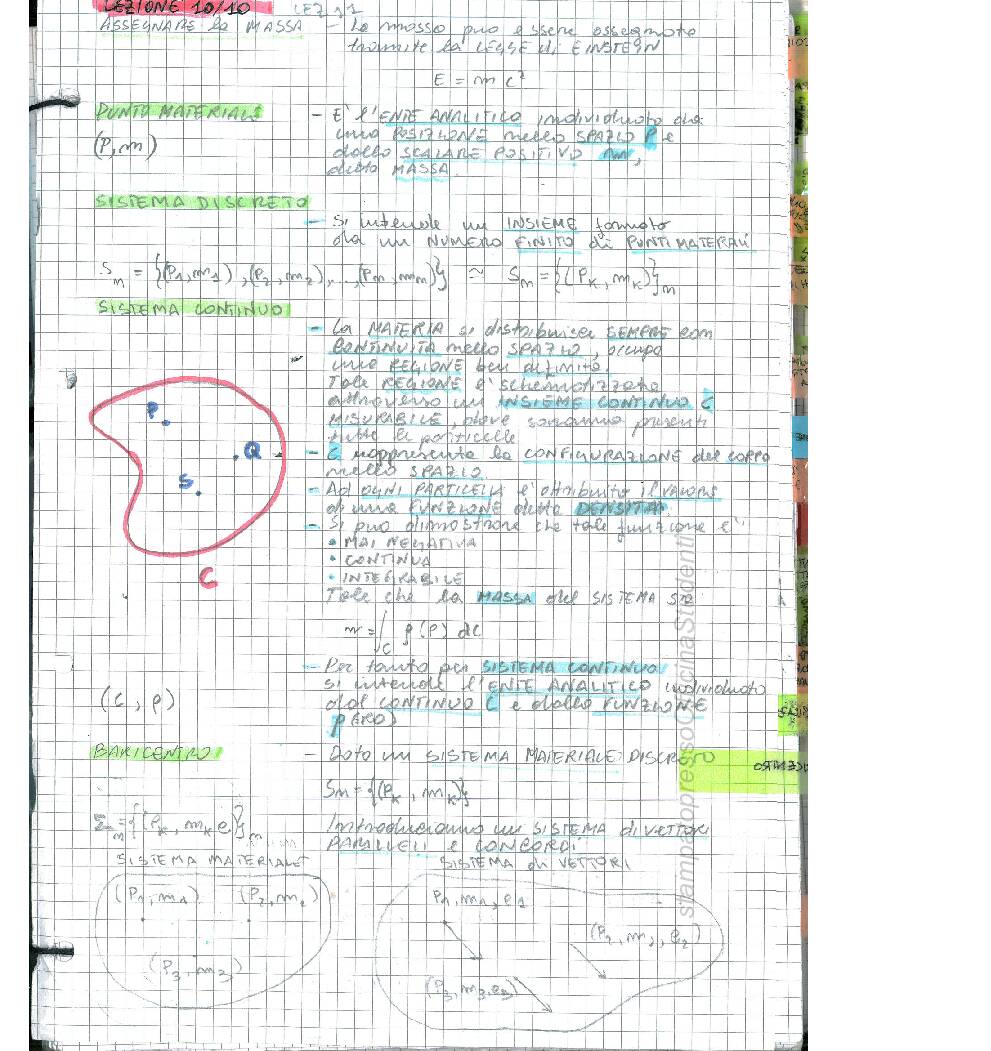 LEZIONE 10/10 LEZ 11
ASSEGNARE la MASSA - La massa può essere assegnata
tramite la LEGGE di EINSTEIN
E = mc²
PUNTO MATERIALE - È l'ENTE ANALITICO individuato da
(P,m) una POSIZIONE nello SPAZIO P e
dallo SCALARE POSITIVO m,
detto MASSA.
SISTEMA DISCRETO
- Si intende un INSIEME formato
da un NUMERO FINITO di PUNTI MATERIALI
Sₘ = {(P₁,m₁),(P₂,m₂),...,(Pₘ,mₘ)} ≃ Sₘ = {(Pₖ,mₖ)}ₘ
SISTEMA CONTINUO
- La MATERIA si distribuisce SEMPRE con
CONTINUITÀ nello SPAZIO, occupa
una REGIONE ben definita.
Tale REGIONE è schematizzata
attraverso un INSIEME CONTINUO C
MISURABILE, dove saranno presenti
tutte le particelle
- C rappresenta la CONFIGURAZIONE del CORPO
nello SPAZIO
- Ad OGNI PARTICELLA è attribuito il valore
di una FUNZIONE detta DENSITÀ
- Si può dimostrare che tale funzione è
• MAI NEGATIVA
• CONTINUA
• INTEGRABILE
Tale che la MASSA del SISTEMA sia
P
Q
S
C
m = ∫C ρ(P) dC
- Per tanto per SISTEMA CONTINUO
si intende l'ENTE ANALITICO individuato
(C, ρ) dal CONTINUO C e dalla FUNZIONE
ρ(RO)
BARICENTRO - Dato un SISTEMA MATERIALE DISCRETO
Sₘ = {(Pₖ, mₖ)}
Σₘ = {(Pₖ, mₖe)}ₘ Introduciamo un SISTEMA di VETTORI
PARALLELI e CONCORDI
SISTEMA MATERIALE SISTEMA di VETTORI
(P₁,m₁) (P₂,m₂)
(P₃,m₃)
P₁,m₁,e₁
(P₂,m₂,e₂)
(P₃,m₃,e₃)
stampatopressoOfficinaStudenti